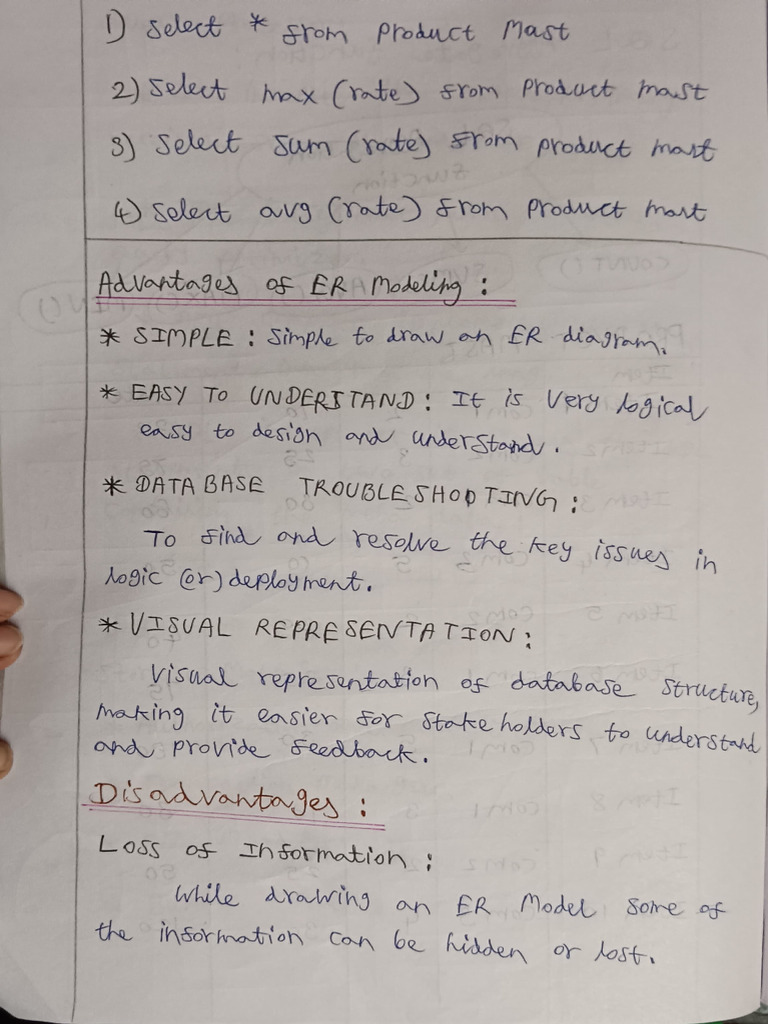 1) Select * from product Mast
2) Select max (rate) from product mast
3) Select sum (rate) from product mast
4) Select avg (rate) from product mast
Advantages of ER Modeling :
* SIMPLE : Simple to draw an ER diagram.
* EASY TO UNDERSTAND : It is very logical
easy to design and understand.
* DATABASE TROUBLESHOOTING :
To find and resolve the key issues in
logic (or) deployment.
* VISUAL REPRESENTATION :
Visual representation of database structure,
making it easier for stakeholders to understand
and provide feedback.
Disadvantages :
Loss of Information :
While drawing an ER Model some of
the information can be hidden or lost.